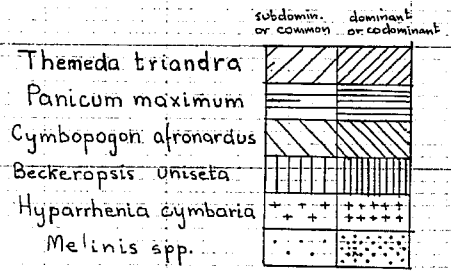 subdomin. dominant
or common or codominant
Themeda triandra
Panicum maximum
Cymbopogon afronardus
Beckeropsis uniseta
Hyparrhenia cymbaria
Melinis spp.